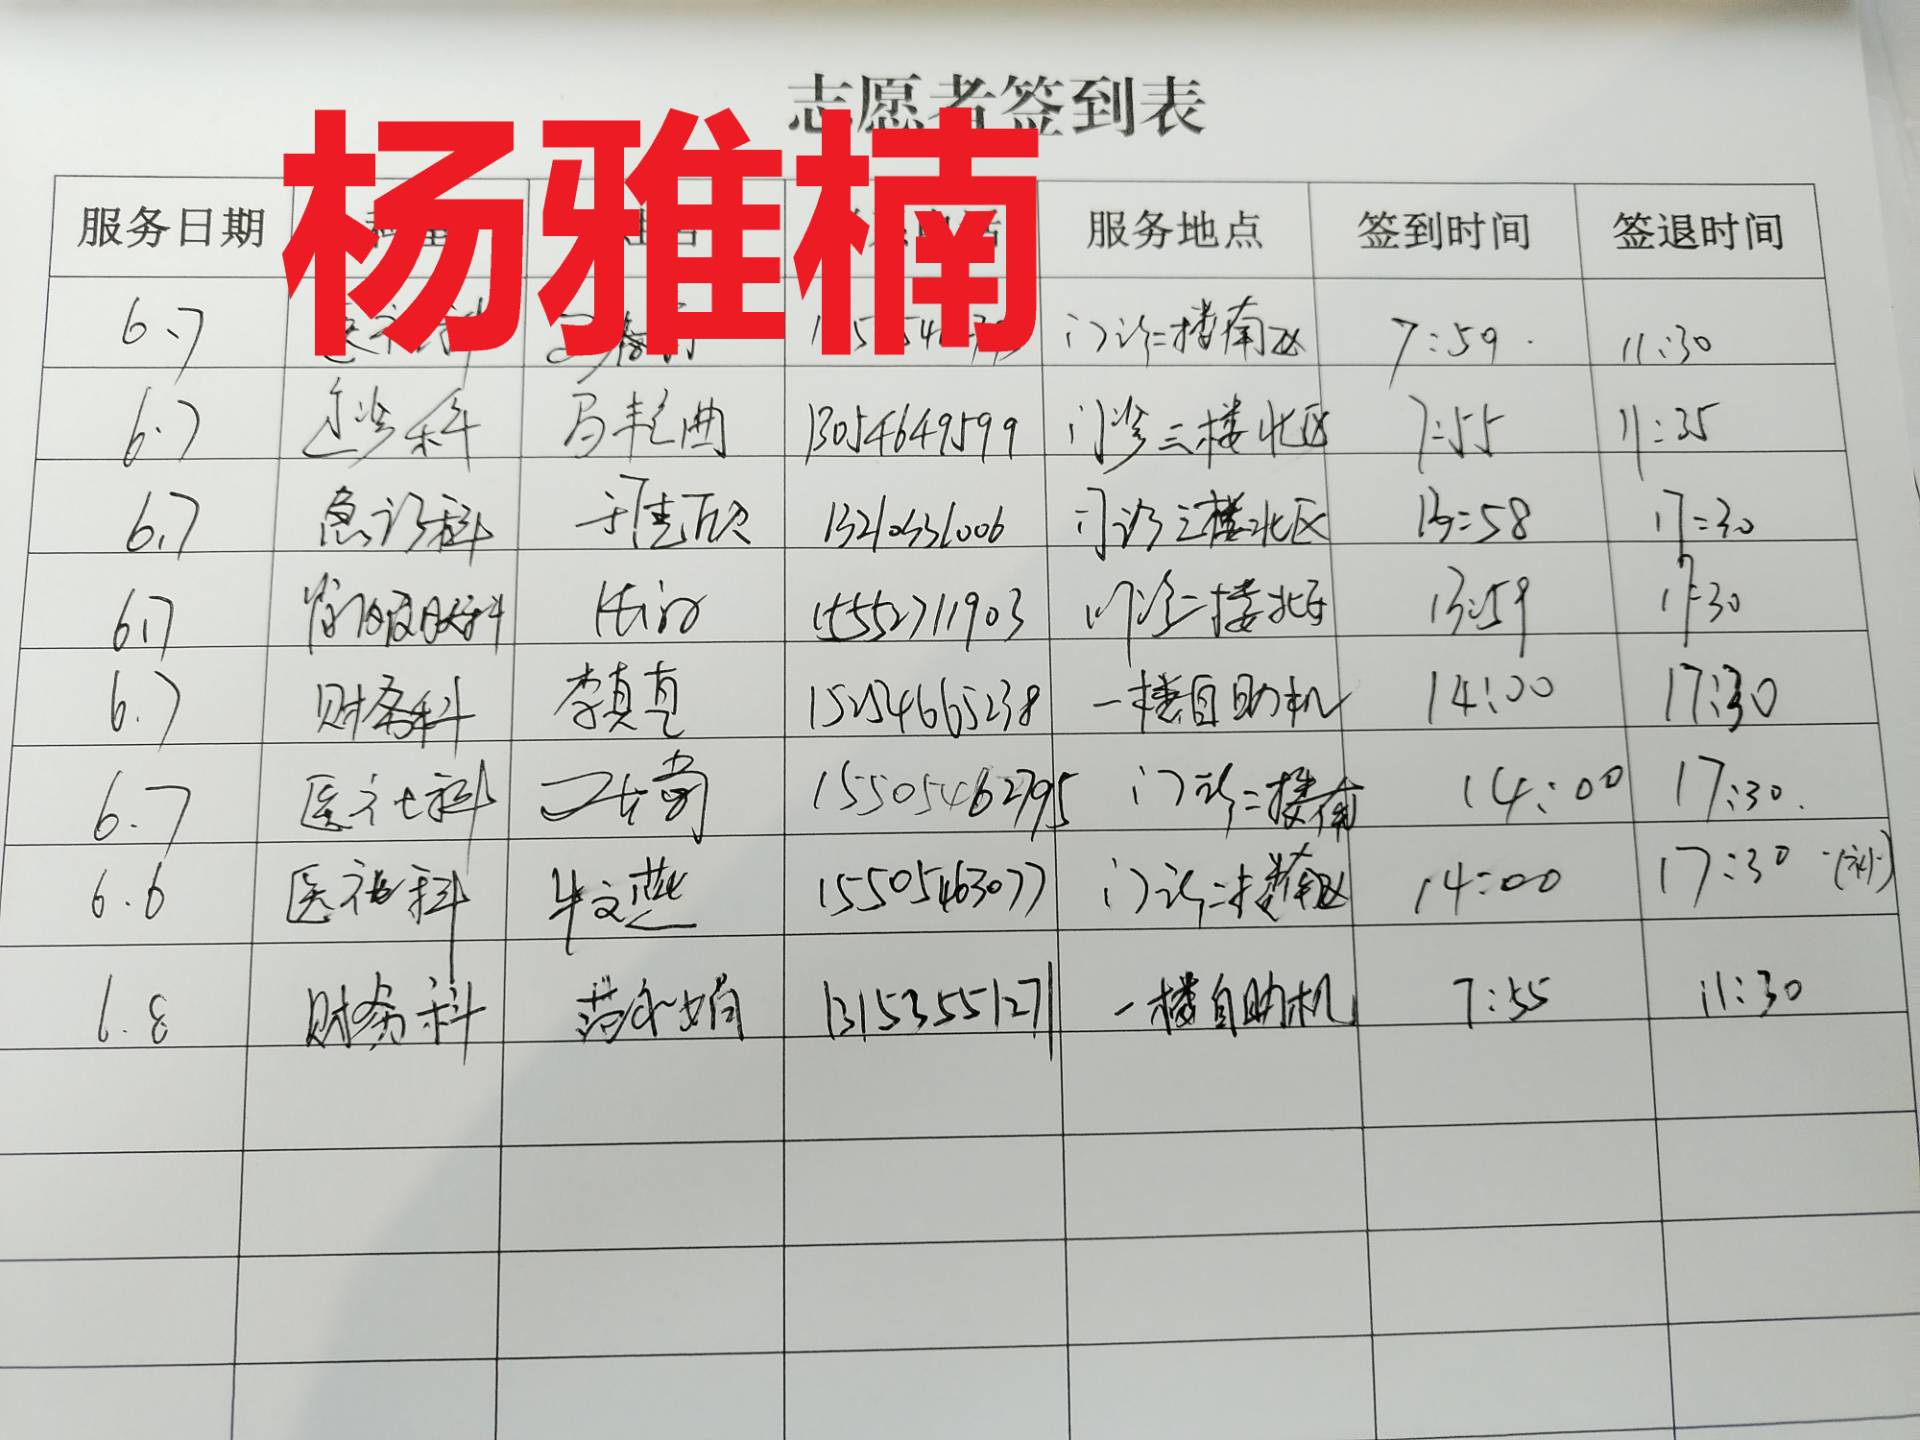 志愿者签到表
杨雅楠
服务日期 服务地点 签到时间 签退时间
6.7 门诊二楼南区 7:59 11:30
6.7 科 马艳曲 13054649599 门诊三楼北区 7:55 11:35
6.7 急诊科 于佳欣 门诊三楼北区 13:58 17:30
6.7 15552711903 门诊二楼北区 13:59 17:30
6.7 财务科 李真真 15254665238 一楼自助机 14:00 17:30
6.7 医社科 15505462795 门诊二楼南 14:00 17:30
6.6 医社科 牛文燕 15505463077 门诊二楼南区 14:00 17:30 (补)
6.8 财务科 13153555127 一楼自助机 7:55 11:30